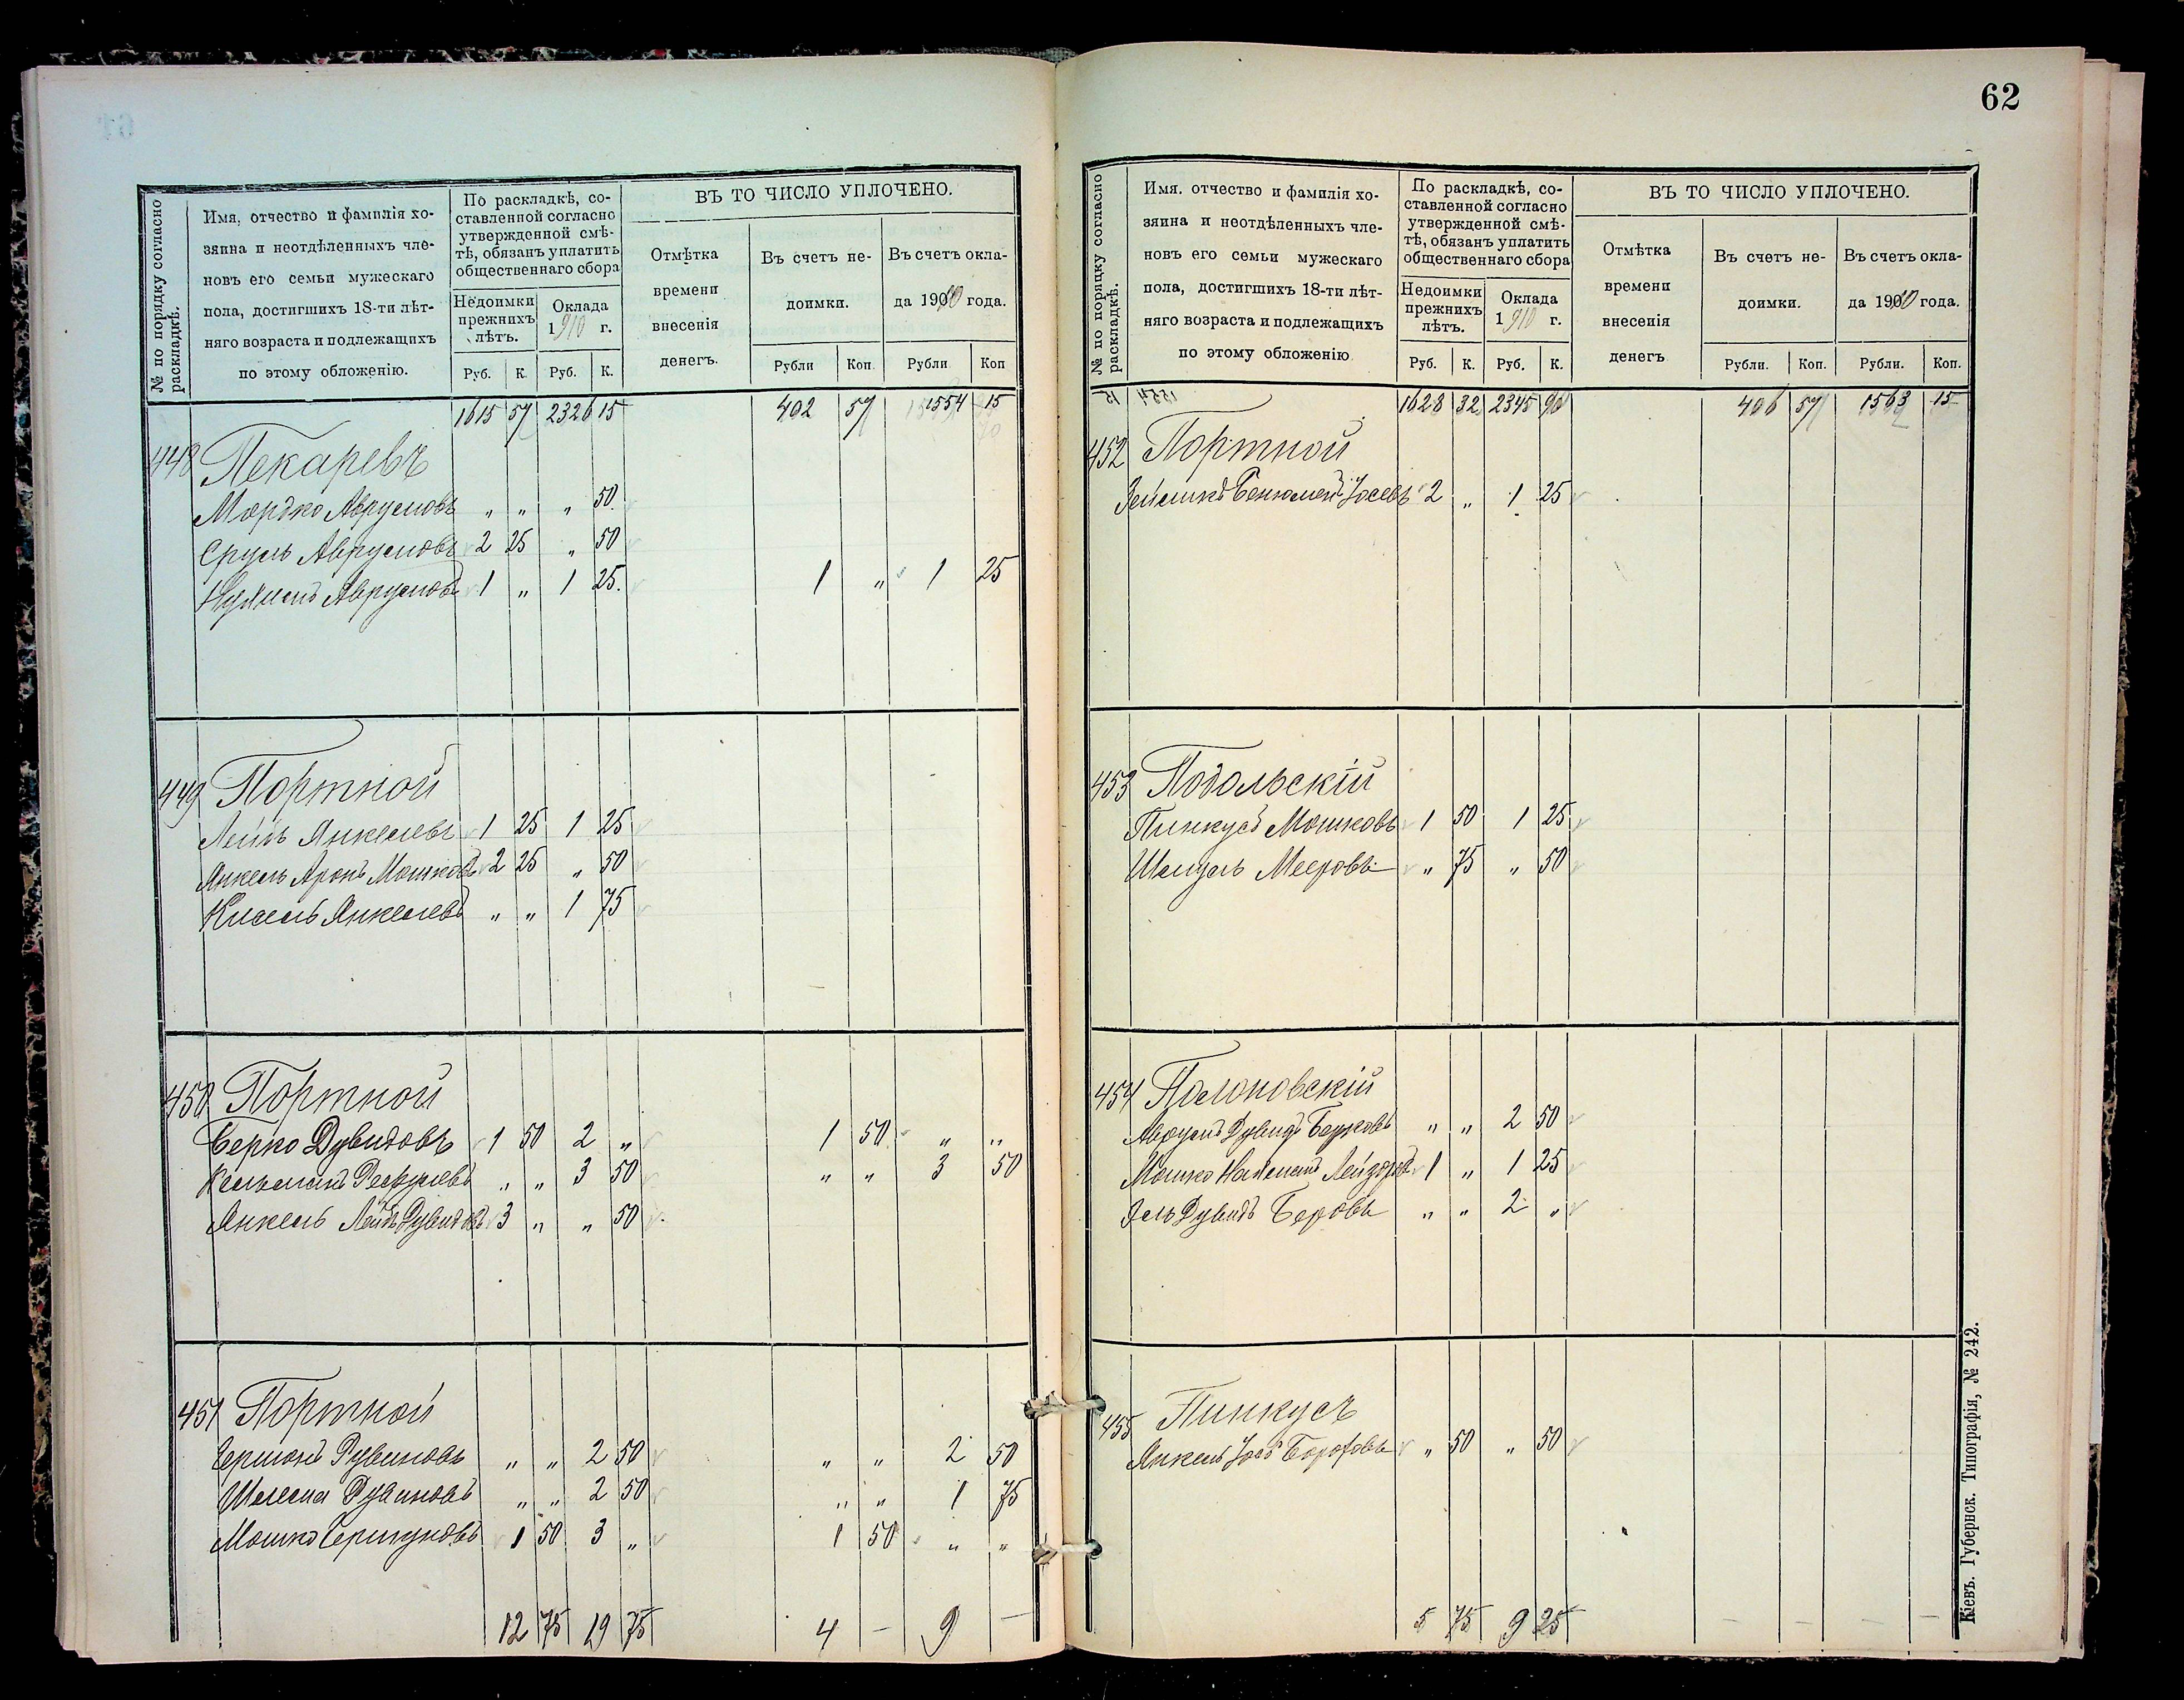 62
№ по порядку согласно раскладкѣ.
Имя, отчество и фамилія хо-
зяина и неотдѣленныхъ чле-
новъ его семьи мужескаго
пола, достигшихъ 18-ти лѣт-
няго возраста и подлежащихъ
по этому обложенію.
По раскладкѣ, со-
ставленной согласно
утвержденной смѣ-
тѣ, обязанъ уплатить
общественнаго сбора
Недоимки
прежнихъ
лѣтъ.
Оклада
1910 г.
Руб. К. Руб. К.
ВЪ ТО ЧИСЛО УПЛОЧЕНО.
Отмѣтка
времени
внесенія
денегъ.
Въ счетъ не-
доимки.
Въ счетъ окла-
да 1910 года.
Рубли Коп. Рубли Коп
1615 57 2326 15 402 57 1554 15
448 Пекаревъ
Мордко Аврумовъ „ „ „ 50
Сруль Аврумовъ 2 25 „ 50
Аврумовъ 1 „ 1 25. 1 „ 1 25
449 Портной
Лейбъ Янкелевъ 1 25 1 25
Янкель Аронъ Мошковъ 2 25 „ 50
Кисель Янкелевъ „ „ 1 75
450 Портной
Берко Дувидовъ 1 50 2 „ 1 50 „ „
„ „ 3 50 „ „ 3 50
Янкель Лейбъ Дувидовъ 3 „ „ 50
451 Портной
Гершонъ Рувиновъ „ „ 2 50 „ „ 2 50
Шлема Рувиновъ „ „ 2 50 „ „ 1 75
Мошко 1 50 3 „ 1 50 „ „
12 75 19 75 4 – 9 –
№ по порядку согласно раскладкѣ.
Имя, отчество и фамилія хо-
зяина и неотдѣленныхъ чле-
новъ его семьи мужескаго
пола, достигшихъ 18-ти лѣт-
няго возраста и подлежащихъ
по этому обложенію
По раскладкѣ, со-
ставленной согласно
утвержденной смѣ-
тѣ, обязанъ уплатить
общественнаго сбора
Недоимки
прежнихъ
лѣтъ.
Оклада
1910 г.
Руб. К. Руб. К.
ВЪ ТО ЧИСЛО УПЛОЧЕНО.
Отмѣтка
времени
внесенія
денегъ
Въ счетъ не-
доимки.
Въ счетъ окла-
да 1910 года.
Рубли. Коп. Рубли. Коп.
1628 32 2345 90 406 57 1563 15
452 Портной
Іосевъ 2 „ 1 25
453 Подольскій
Пинкусъ Мошковъ 1 50 1 25
Шмуль Мееровъ „ 75 „ 50
454 Полоновскій
Аврумъ Дувидъ Берковъ „ „ 2 50
Мошко Лейзоровъ 1 „ 1 25
Дувидъ Беровъ „ „ 2 „
455 Пинкусъ
Янкель „ 50 „ 50
5 75 9 25 – – – –
Кіевъ. Губернск. Типографія, № 242.